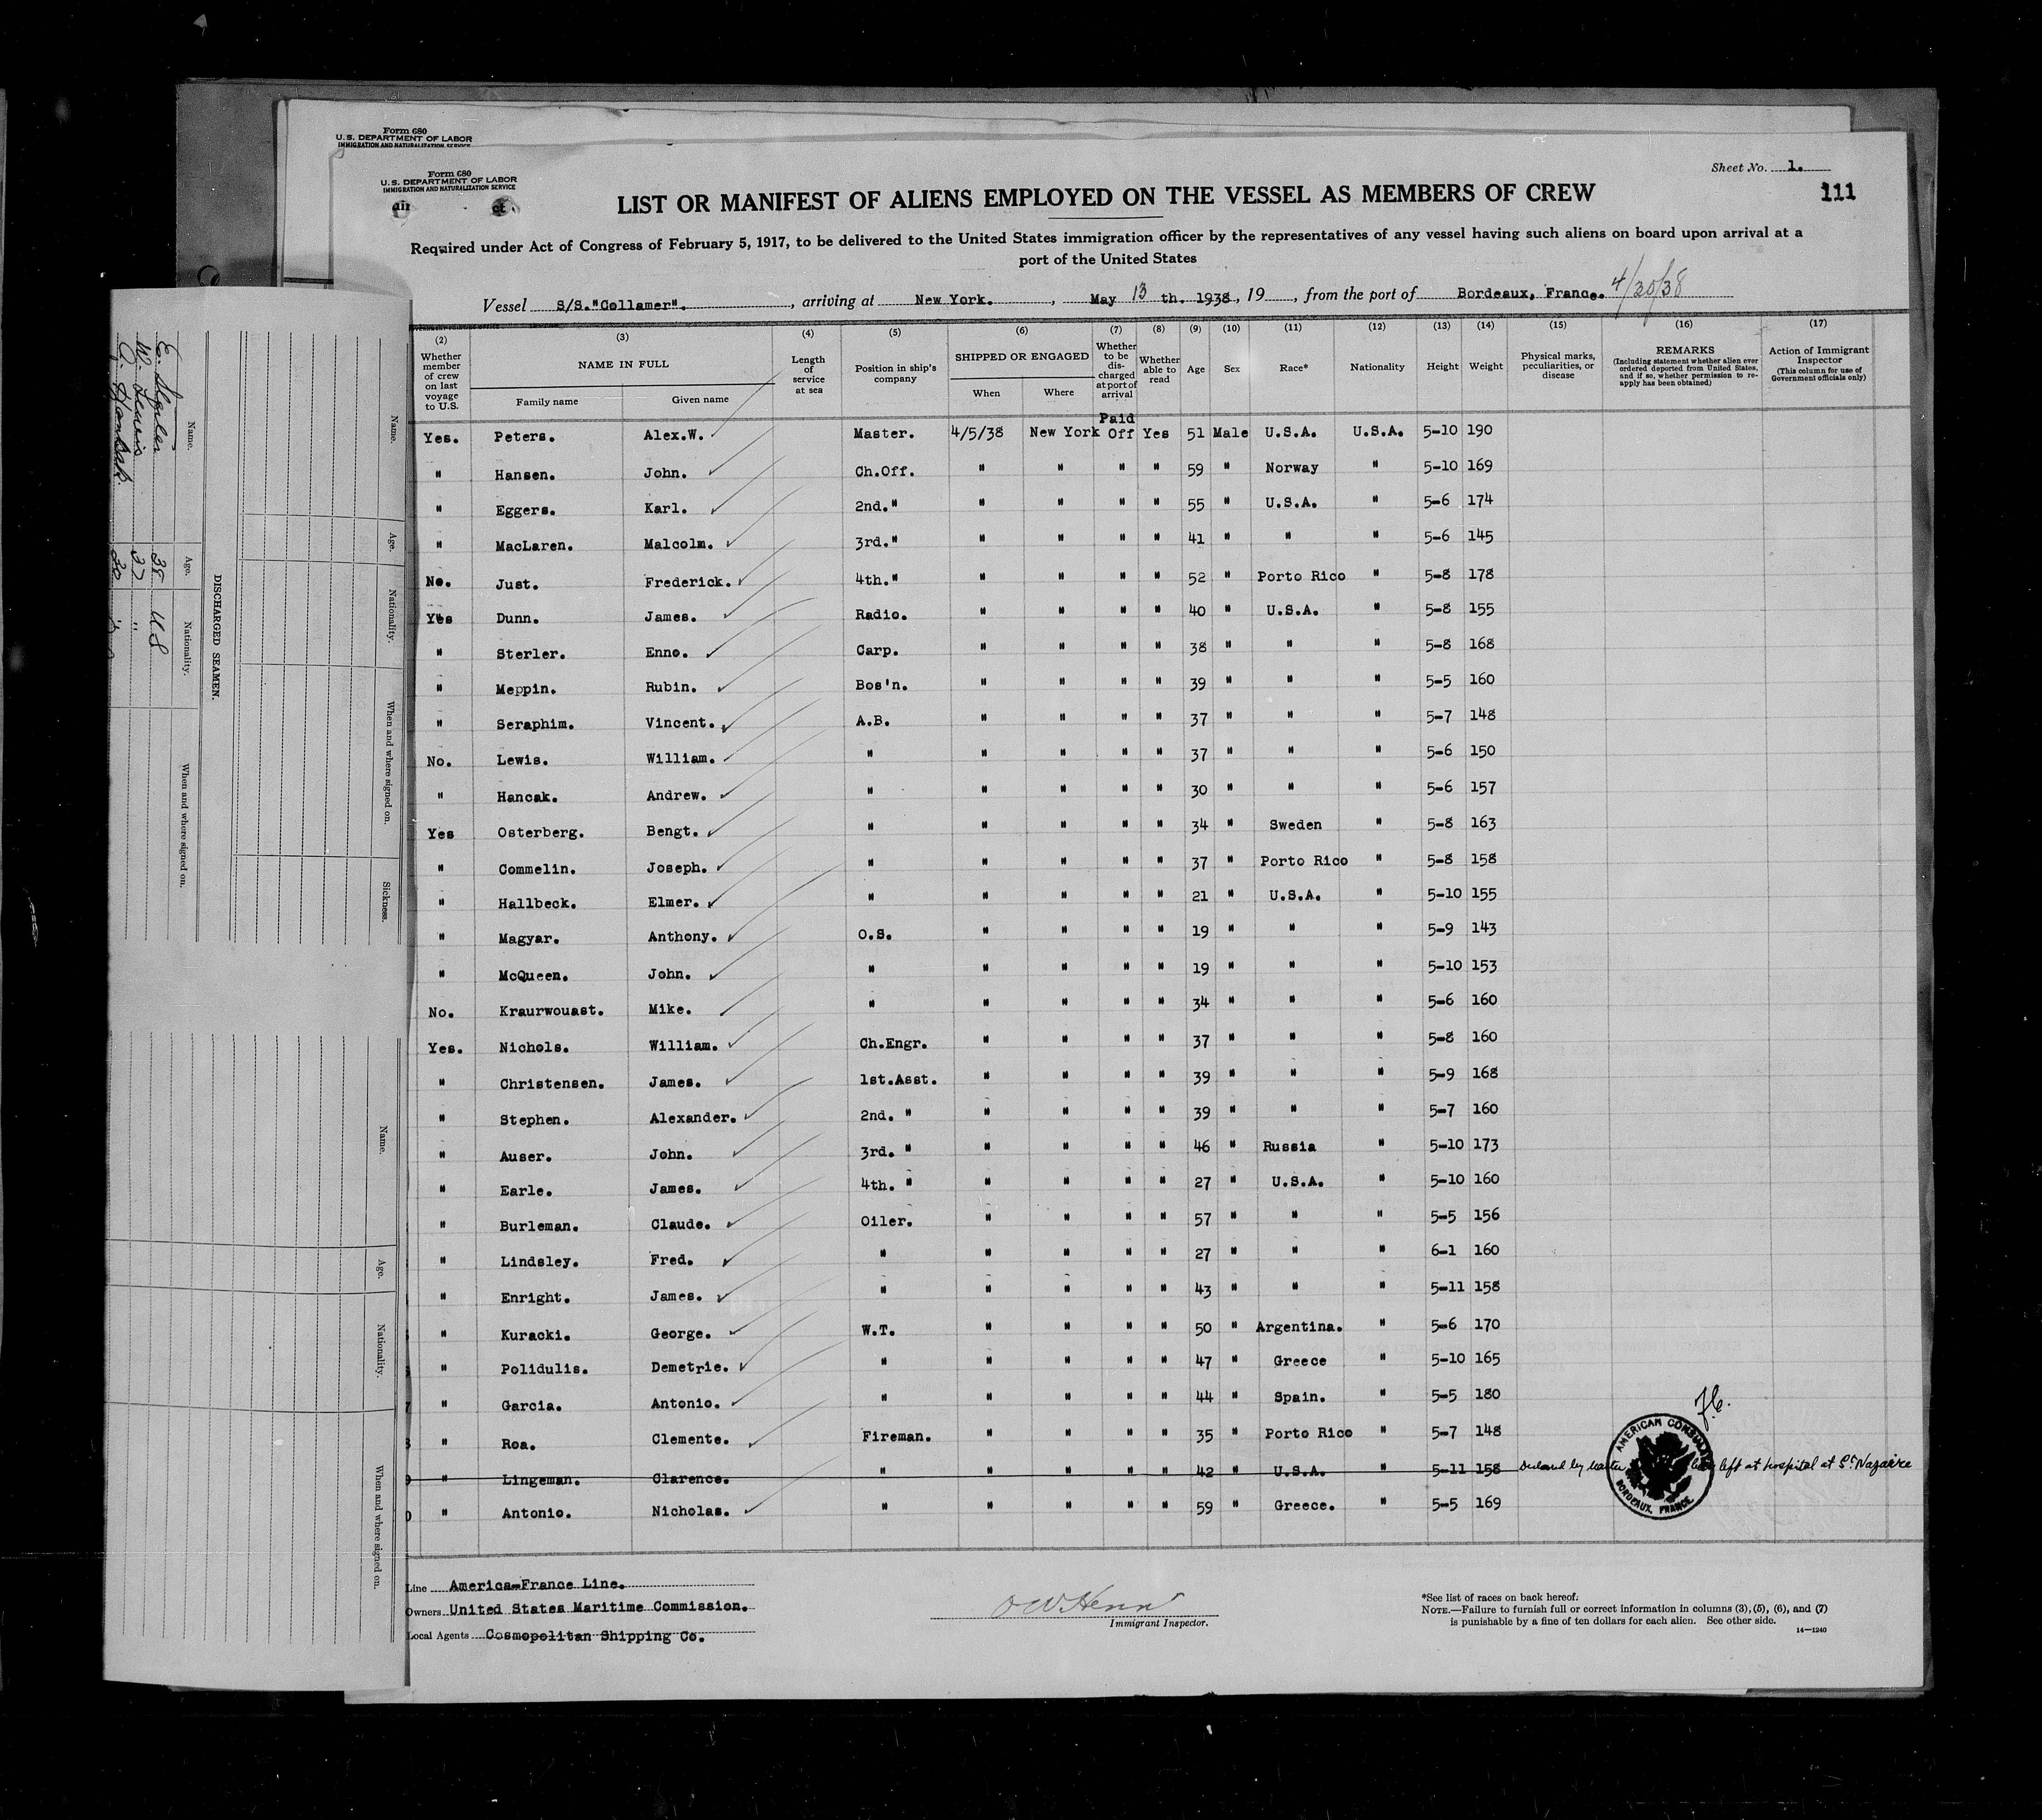 Form 680
U. S. DEPARTMENT OF LABOR
IMMIGRATION AND NATURALIZATION SERVICE
Form 680
U. S. DEPARTMENT OF LABOR
IMMIGRATION AND NATURALIZATION SERVICE
Sheet No. 1.
111
LIST OR MANIFEST OF ALIENS EMPLOYED ON THE VESSEL AS MEMBERS OF CREW
Required under Act of Congress of February 5, 1917, to be delivered to the United States immigration officer by the representatives of any vessel having such aliens on board upon arrival at a
port of the United States
Vessel S/S."Collamer"., arriving at New York., May 13 th. 1938, 19, from the port of Bordeaux, France. 4/30/38
(2) (3) (4) (5) (6) (7) (8) (9) (10) (11) (12) (13) (14) (15) (16) (17)
Whether member of crew on last voyage to U.S. NAME IN FULL Family name Given name Length of service at sea Position in ship's company SHIPPED OR ENGAGED When Where Whether to be discharged at port of arrival Whether able to read Age Sex Race* Nationality Height Weight Physical marks, peculiarities, or disease REMARKS (Including statement whether alien ever ordered deported from United States, and if so, whether permission to reapply has been obtained) Action of Immigrant Inspector (This column for use of Government officials only)
Yes. Peters. Alex.W. Master. 4/5/38 New York Paid Off Yes 51 Male U.S.A. U.S.A. 5-10 190
" Hansen. John. Ch.Off. " " " " 59 " Norway " 5-10 169
" Eggers. Karl. 2nd." " " " " 55 " U.S.A. " 5-6 174
" MacLaren. Malcolm. 3rd." " " " " 41 " " " 5-6 145
No. Just. Frederick. 4th." " " " " 52 " Porto Rico " 5-8 178
Yes Dunn. James. Radio. " " " " 40 " U.S.A. " 5-8 155
" Sterler. Enno. Carp. " " " " 38 " " " 5-8 168
" Meppin. Rubin. Bos'n. " " " " 39 " " " 5-5 160
" Seraphim. Vincent. A.B. " " " " 37 " " " 5-7 148
No. Lewis. William. " " " " " 37 " " " 5-6 150
" Hancak. Andrew. " " " " " 30 " " " 5-6 157
Yes Osterberg. Bengt. " " " " " 34 " Sweden " 5-8 163
" Commelin. Joseph. " " " " " 37 " Porto Rico " 5-8 158
" Hallbeck. Elmer. " " " " " 21 " U.S.A. " 5-10 155
" Magyar. Anthony. O.S. " " " " 19 " " " 5-9 143
" McQueen. John. " " " " " 19 " " " 5-10 153
No. Kraurwouast. Mike. " " " " " 34 " " " 5-6 160
Yes. Nichols. William. Ch.Engr. " " " " 37 " " " 5-8 160
" Christensen. James. 1st.Asst. " " " " 39 " " " 5-9 168
" Stephen. Alexander. 2nd. " " " " " 39 " " " 5-7 160
" Auser. John. 3rd. " " " " " 46 " Russia " 5-10 173
" Earle. James. 4th. " " " " " 27 " U.S.A. " 5-10 160
" Burleman. Claude. Oiler. " " " " 57 " " " 5-5 156
" Lindsley. Fred. " " " " " 27 " " " 6-1 160
" Enright. James. " " " " " 43 " " " 5-11 158
" Kuracki. George. W.T. " " " " 50 " Argentina. " 5-6 170
" Polidulis. Demetrie. " " " " " 47 " Greece " 5-10 165
" Garcia. Antonio. " " " " " 44 " Spain. " 5-5 180
" Roa. Clemente. Fireman. " " " " 35 " Porto Rico " 5-7 148
" Lingeman. Clarence. " " " " " 42 " U.S.A. " 5-11 158 Declared by Master left at hospital at St Nazaire
" Antonio. Nicholas. " " " " " 59 " Greece. " 5-5 169
AMERICAN CONSULATE
BORDEAUX, FRANCE
Line America-France Line.
Owners United States Maritime Commission.
Local Agents Cosmopolitan Shipping Co.
Immigrant Inspector.
*See list of races on back hereof.
NOTE.—Failure to furnish full or correct information in columns (3), (5), (6), and (7)
is punishable by a fine of ten dollars for each alien. See other side.
14—1240
Name. Age. Nationality. When and where signed on. Sickness.
DISCHARGED SEAMEN.
Name. Age. Nationality. When and where signed on.
38 US
W. Lewis 37 "
30 "
Name. Age. Nationality. When and where signed on.